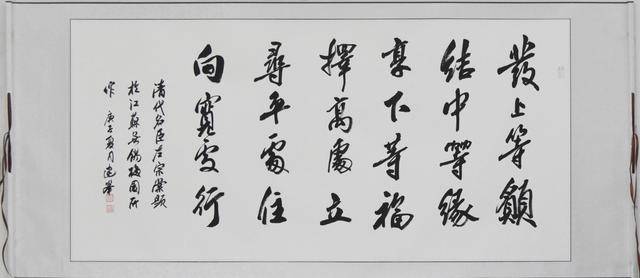 發上等願
結中等緣
享下等福
擇高處立
尋平處住
向寬處行
清代名臣左宗棠題
於江蘇無錫梅園所
作 庚子夏月